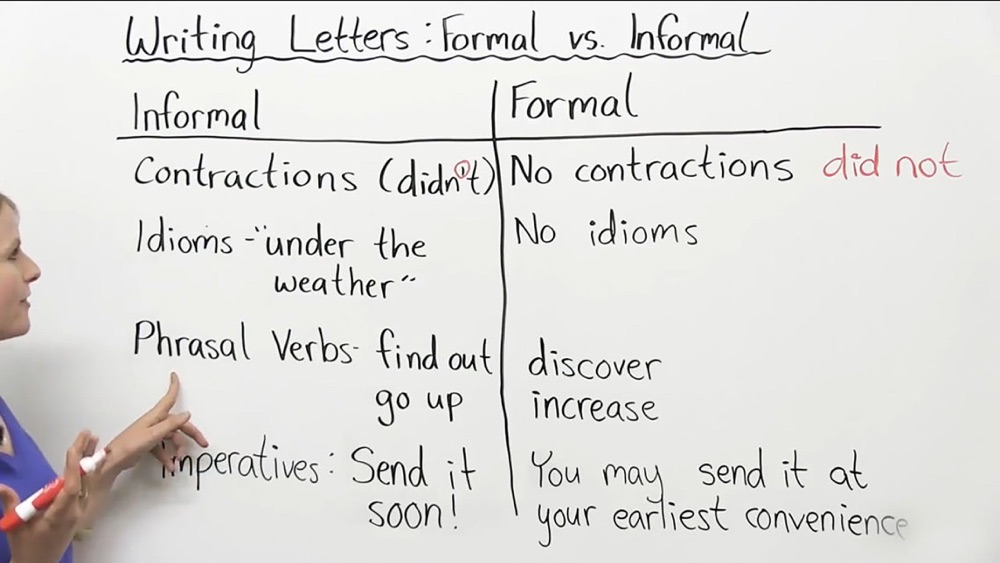 Writing Letters: Formal vs. Informal
Informal
Formal
Contractions (didn't)
No contractions did not
Idioms - "under the
weather"
No idioms
Phrasal Verbs - find out
go up
discover
increase
imperatives: Send it
soon!
You may send it at
your earliest convenience